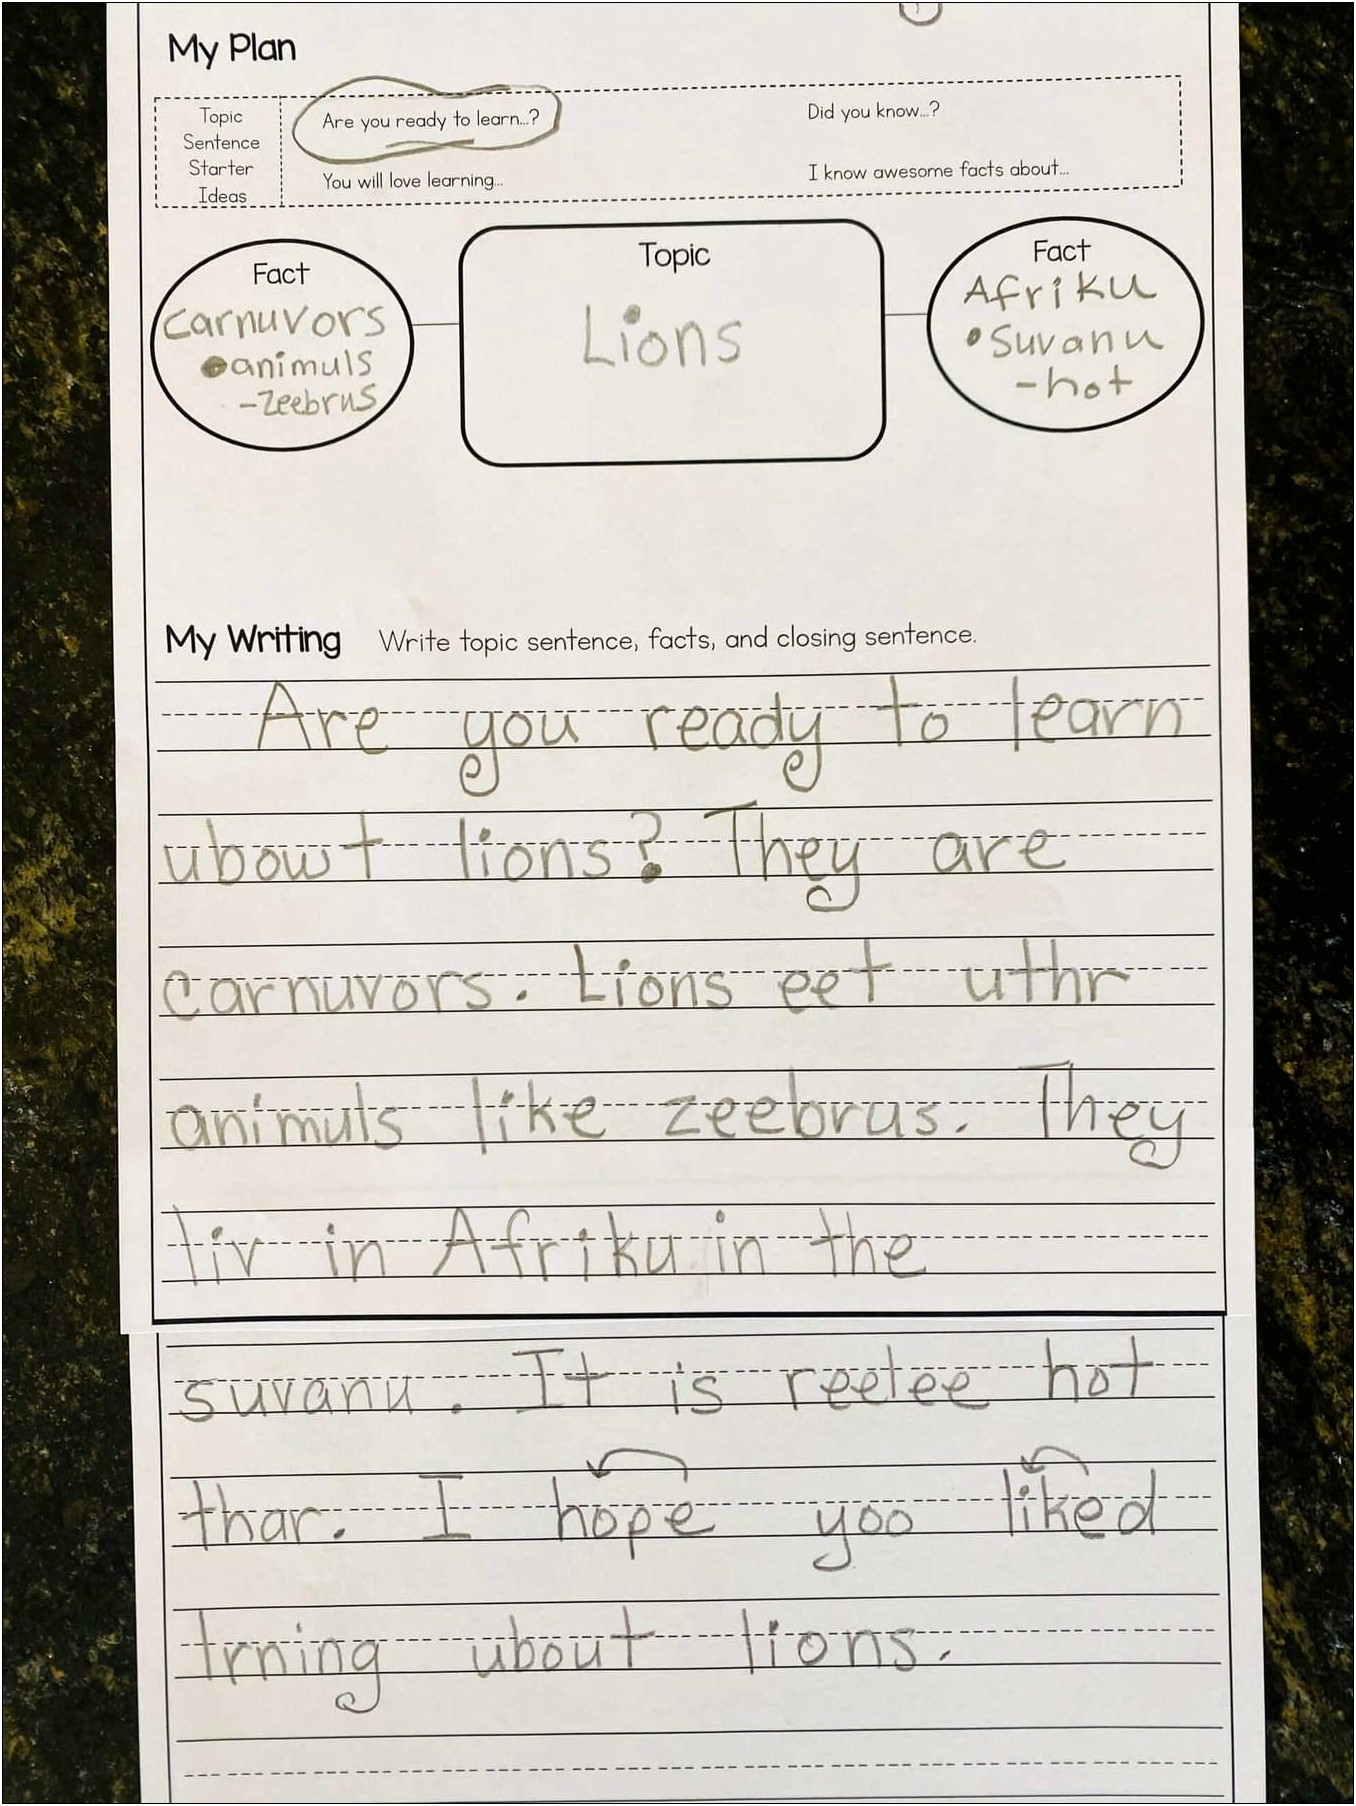 My Plan
Topic
Sentence
Starter
Ideas
Are you ready to learn...?
Did you know...?
You will love learning...
I know awesome facts about...
Fact
carnuvors
•animuls
-zeebrus
Topic
Lions
Fact
Afriku
•suvanu
-hot
My Writing Write topic sentence, facts, and closing sentence.
Are you ready to learn
ubowt lions? They are
carnuvors. Lions eet uthr
animuls like zeebrus. They
liv in Afriku in the
suvanu. It is reelee hot
thar. I hope yoo liked
lrning ubout lions.